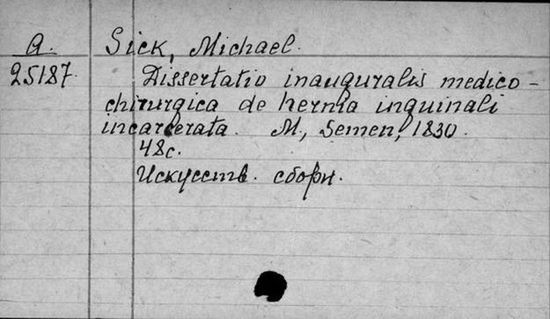 A. Sick, Michael.
25187. Dissertatio inauguralis medico-
chirurgica de hernia inguinali
incarcerata. M., Semen, 1830.
48с.
Искусств. сборн.